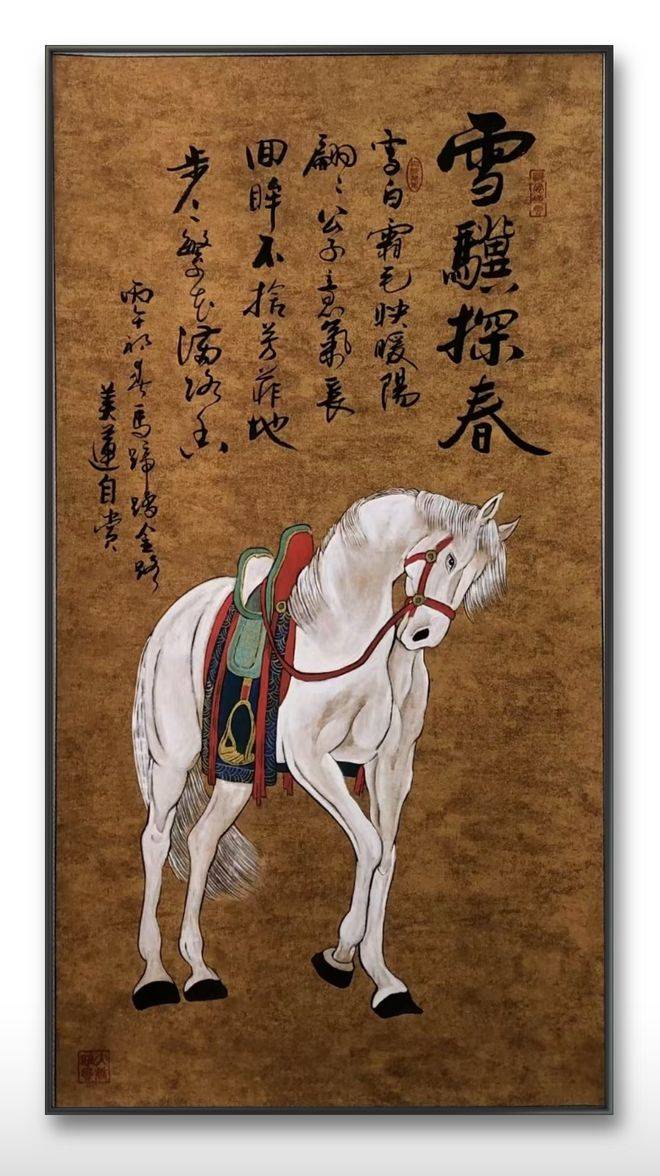 雪驥探春
雪白霜毛映暖陽
翩〻公子意氣長
回眸不捨芳菲地
步〻繁花滿路香
丙午初春馬蹄踏金路
美蓮自賞